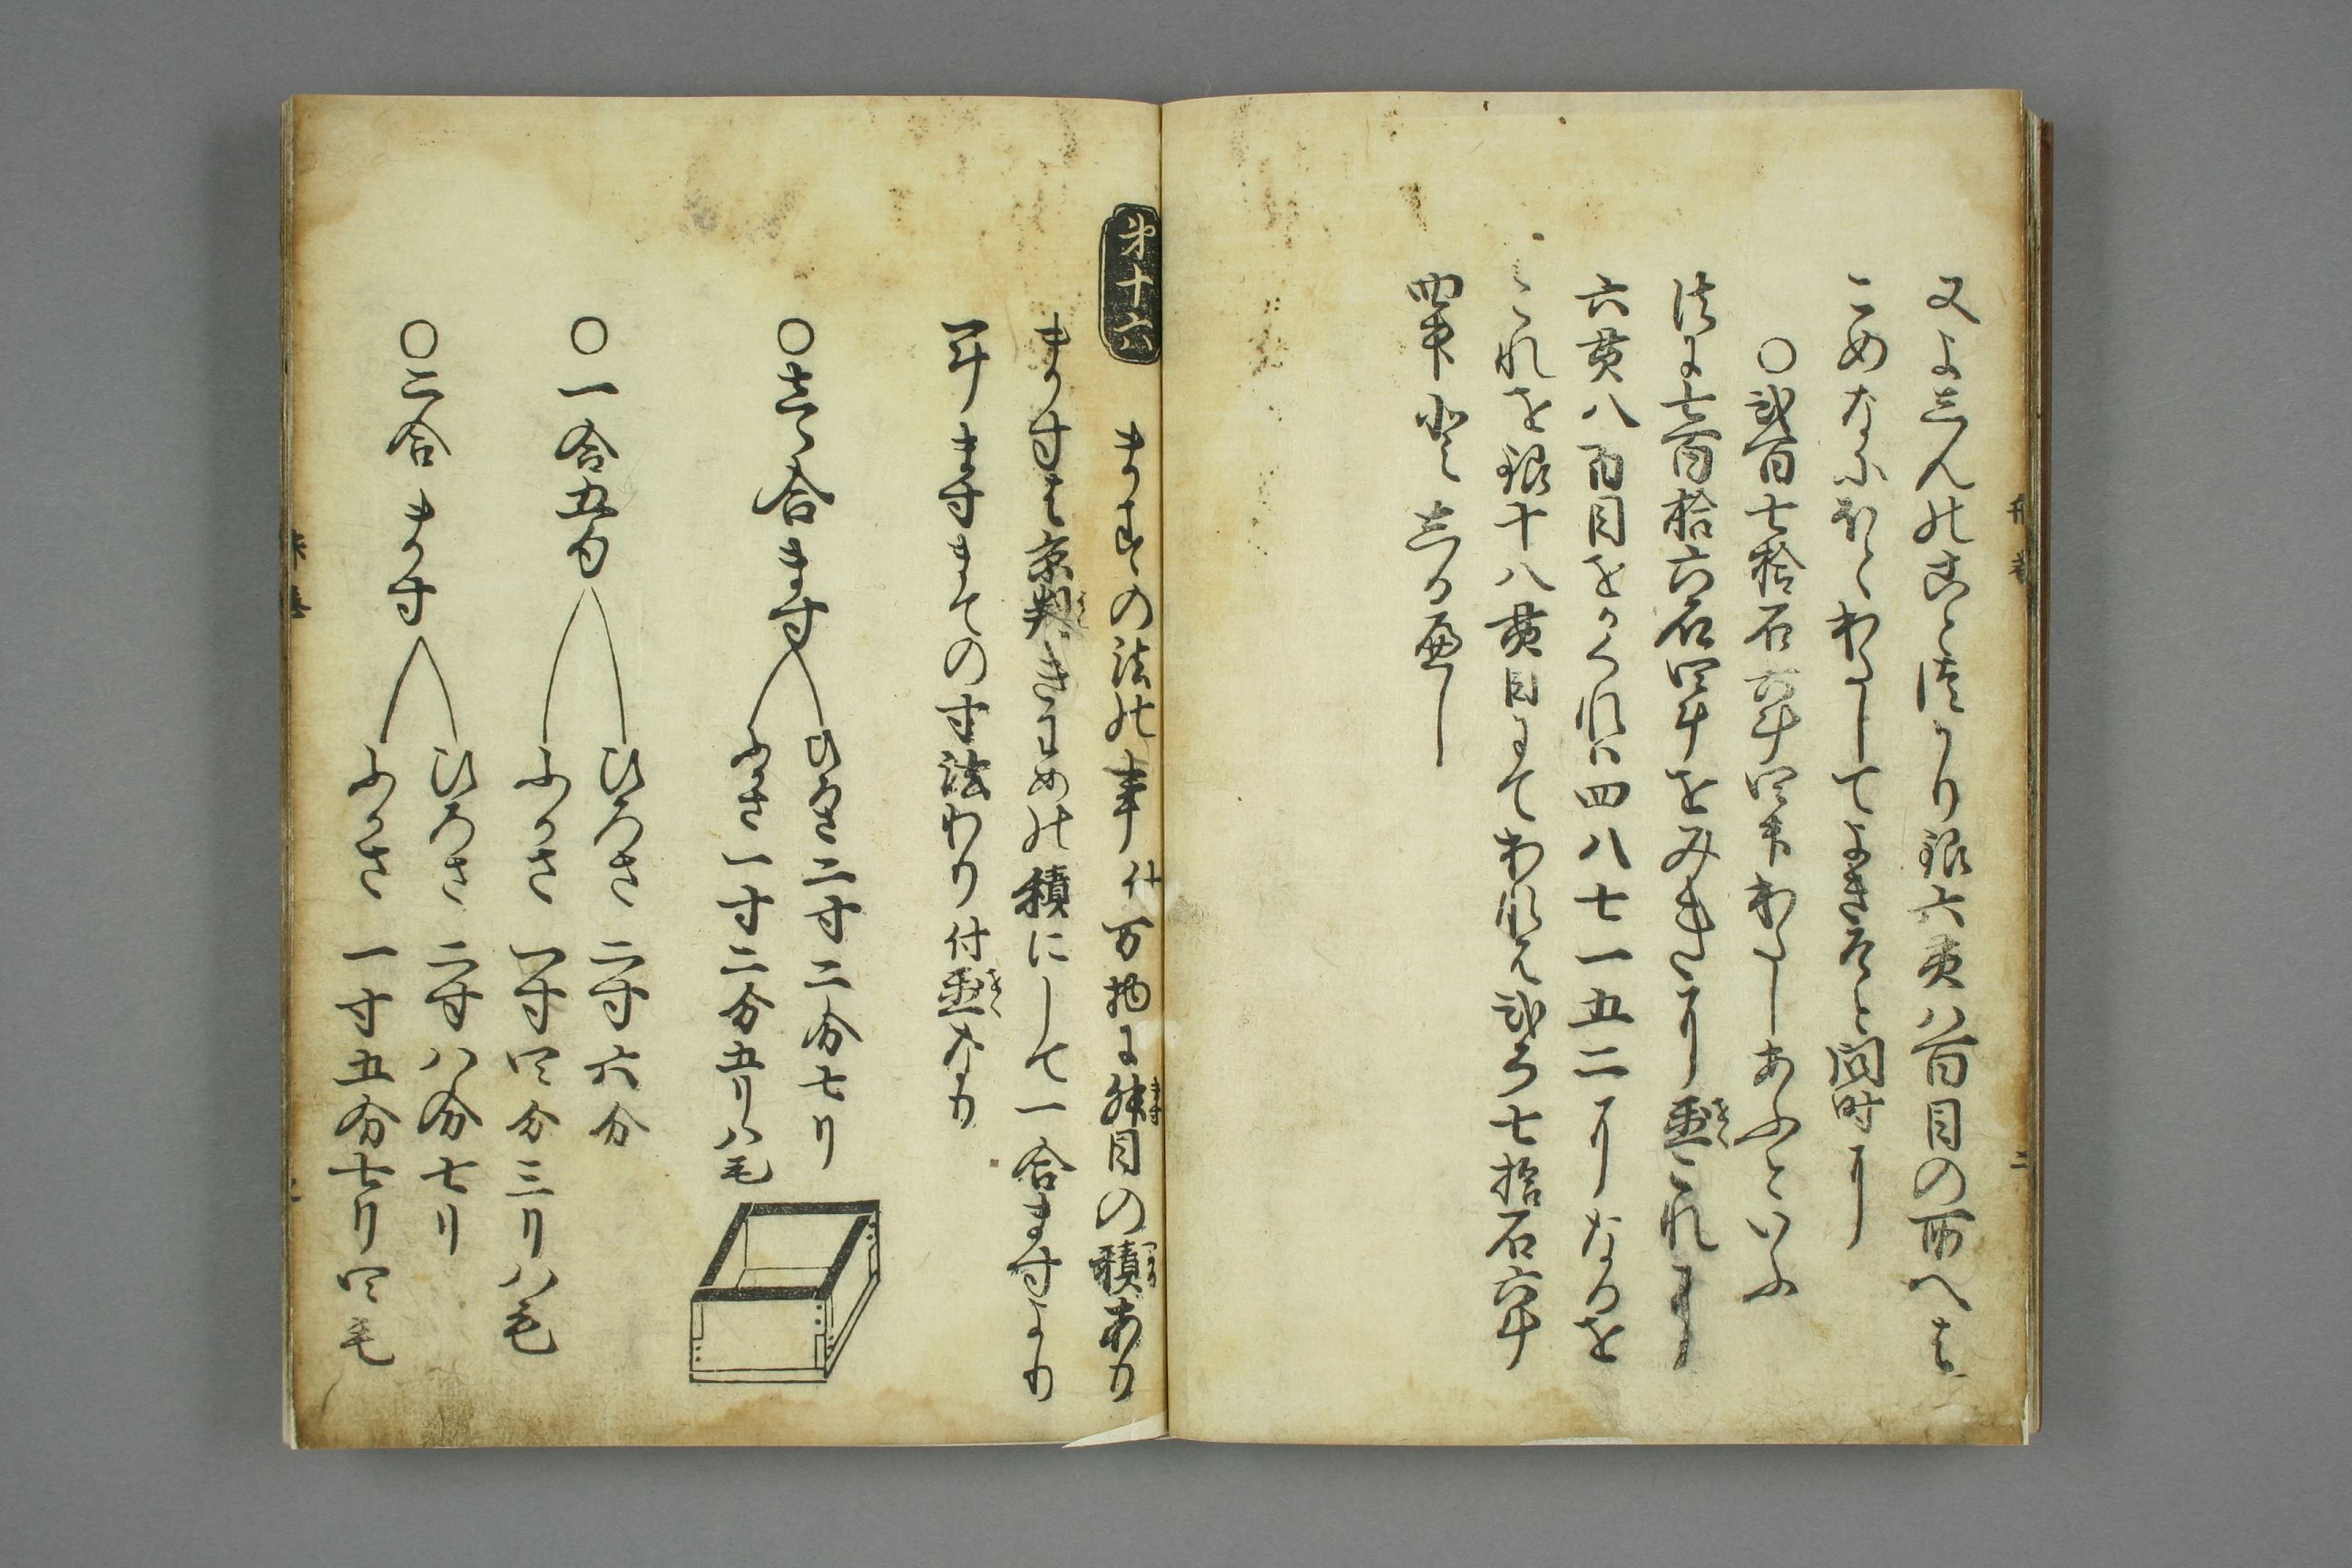 銀六貫八百目の所へは
こめなにほとわたしてよきそと問時に
〇弐百七拾石六斗四升わたしあふといふ
法に七百拾六石四斗をみきにり置これに
六貫八百目をかくれは四八七一五二になるを
これを銀十八貫目にてわれは弐百七拾石六斗
四升としるへし
第十六
ますの法の事 付万物に舛目の積あり
ますは京判きはめの積にして一合ますより
一斗ますまての寸法わり付置なり
〇一合ます
ひろさ二寸二分七り
ふかさ一寸二分五り八毛
〇一合五勺
ひろさ 二寸六分
ふかさ 一寸四分三り八毛
〇二合ます
ひろさ 二寸八分七り
ふかさ 一寸五分七り四毛